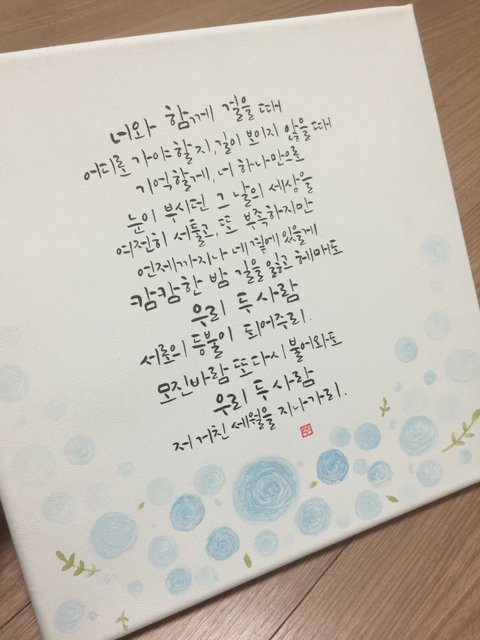 너와 함께 걸을 때
어디로 가야 할지, 길이 보이지 않을 때
기억할게, 너 하나만으로
눈이 부시던 그 날의 세상을
여전히 서툴고, 또 부족하지만
언제까지나 네 곁에 있을게
캄캄한 밤 길을 잃고 헤매도
우리 두 사람
서로의 등불이 되어주리.
모진 바람 또 다시 불어와도
우리 두 사람
저 거친 세월을 지나가리.